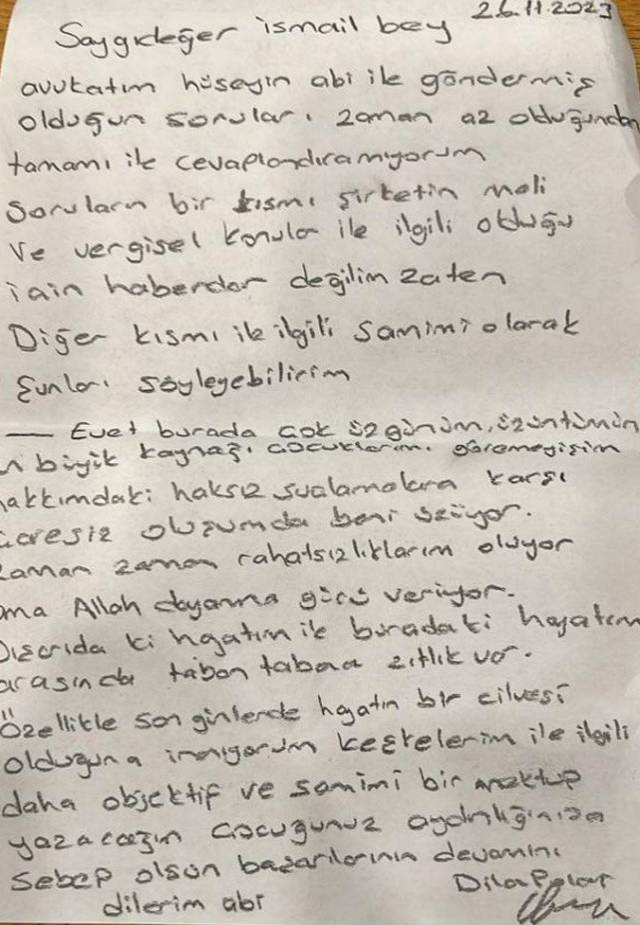 26.11.2023
Saygıdeğer ismail bey
avukatım hüseyin abi ile göndermiş
olduğun soruları zaman az olduğundan
tamamı ile cevaplandıramıyorum
Soruların bir kısmı şirketin mali
ve vergisel konular ile ilgili olduğu
için haberdar değilim zaten
Diğer kısmı ile ilgili samimi olarak
şunları söyleyebilirim
— Evet burada çok üzgünüm, üzüntümün
n büyük kaynağı çocuklarımı göremeyişim
hakkımdaki haksız suçlamalara karşı
çaresiz oluşumda beni üzüyor.
zaman zaman rahatsızlıklarım oluyor
ama Allah dayanma gücü veriyor.
Dışarıda ki hayatım ile buradaki hayatım
arasında taban tabana zıtlık var.
Özellikle son günlerde hayatın bir cilvesi
olduğuna inanıyorum keşkelerim ile ilgili
daha objektif ve samimi bir mektup
yazacağım çocuğunuz aydınlığınıza
sebep olsun başarılarının devamını
dilerim abi
Dila Polat